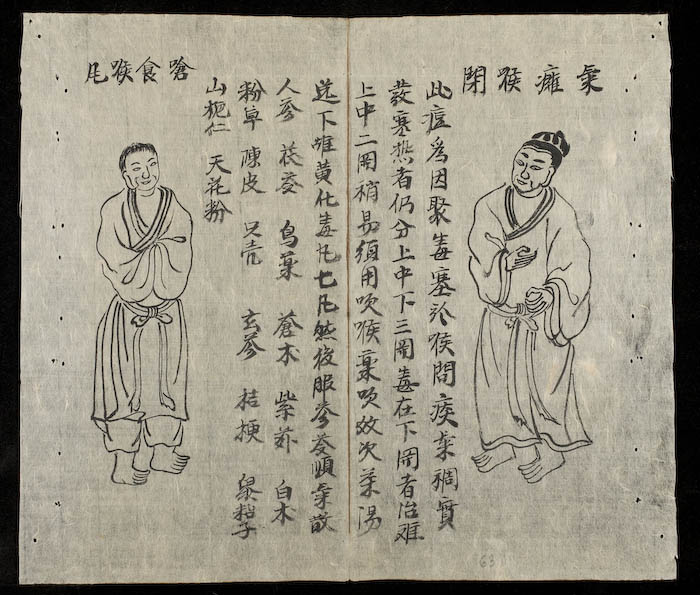 氣癰喉閉
此症為因聚毒塞於喉間痰氣稠實
發塞熱者仍分上中下三関毒在下関者治难
上中二関稍易須用吹喉藥吹效次茶湯
送下雄黃化毒凡七凡然後服參苓順氣散
人參 茯苓 烏藥 蒼术 紫苏 白术
粉草 陳皮 只壳 玄參 桔梗 鼠粘子
山梔仁 天花粉
嗆食喉凡
63